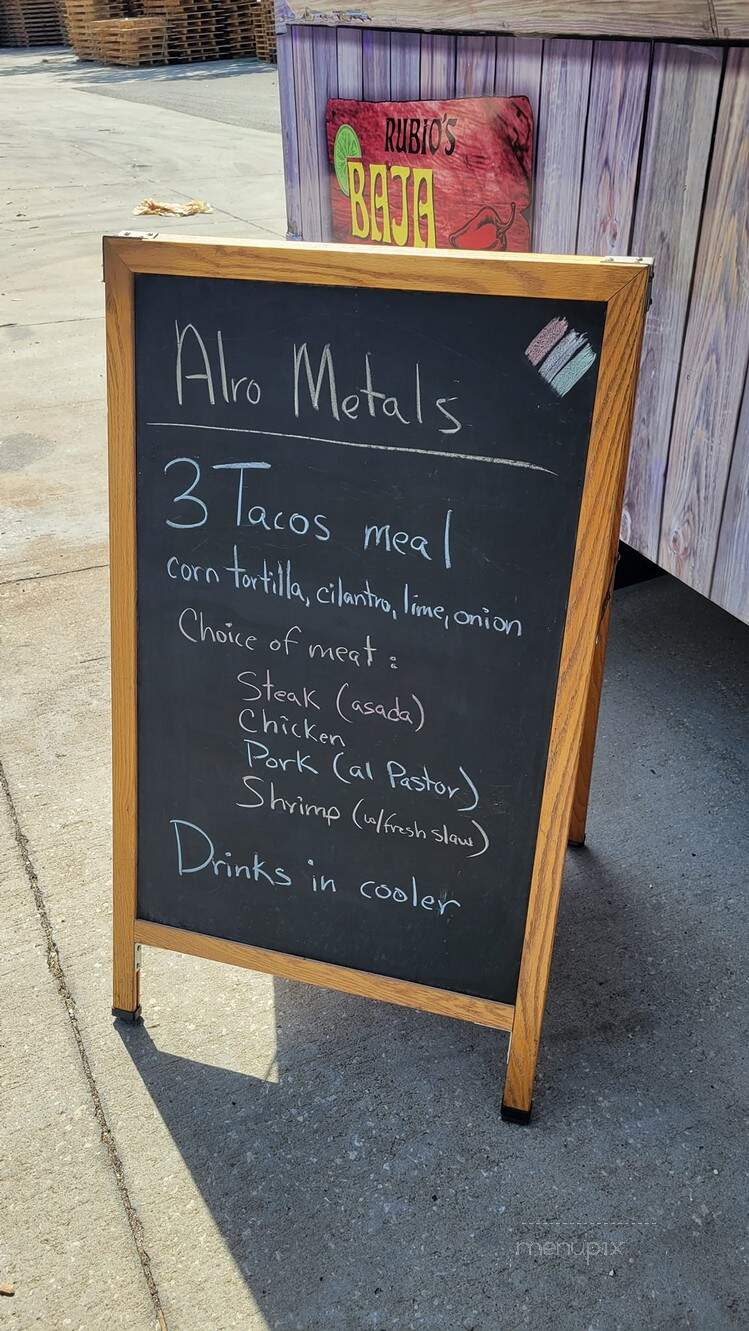 RUBIO'S
BAJA
Alro Metals
3 Tacos meal
corn tortilla, cilantro, lime, onion
Choice of meat:
Steak (asada)
Chicken
Pork (al Pastor)
Shrimp (w/fresh slaw)
Drinks in cooler
menupix